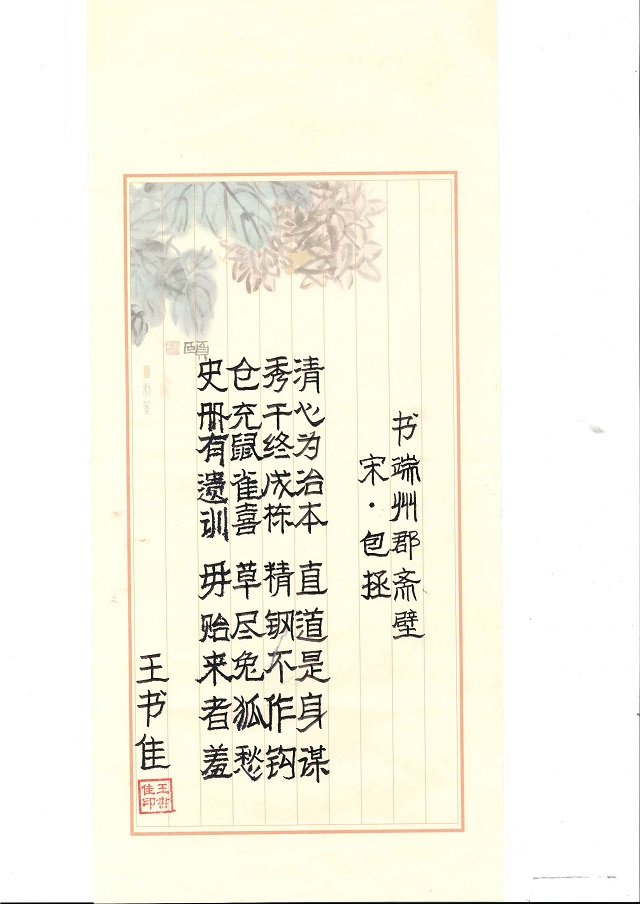 书端州郡斋壁
宋·包拯
清心为治本 直道是身谋
秀干终成栋 精钢不作钩
仓充鼠雀喜 草尽兔狐愁
史册有遗训 毋贻来者羞
王书佳
王书佳印
頤